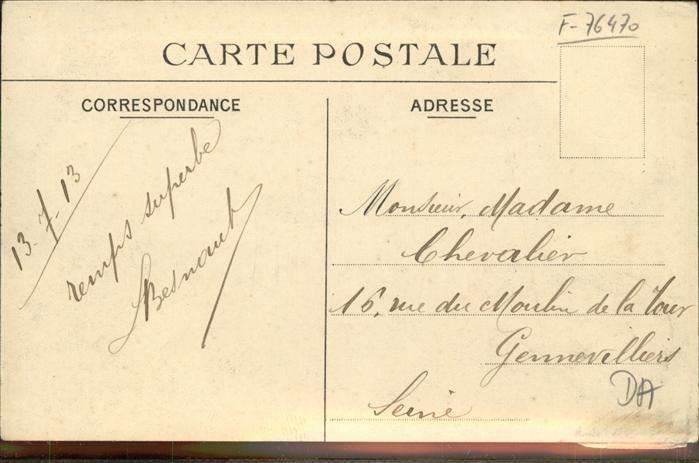 F-76470
CARTE POSTALE
CORRESPONDANCE
13-7-13
temps superbe
Besnault
ADRESSE
Monsieur, Madame
Chevalier
16, rue du Moulin de la Tour
Gennevilliers
Seine
DA